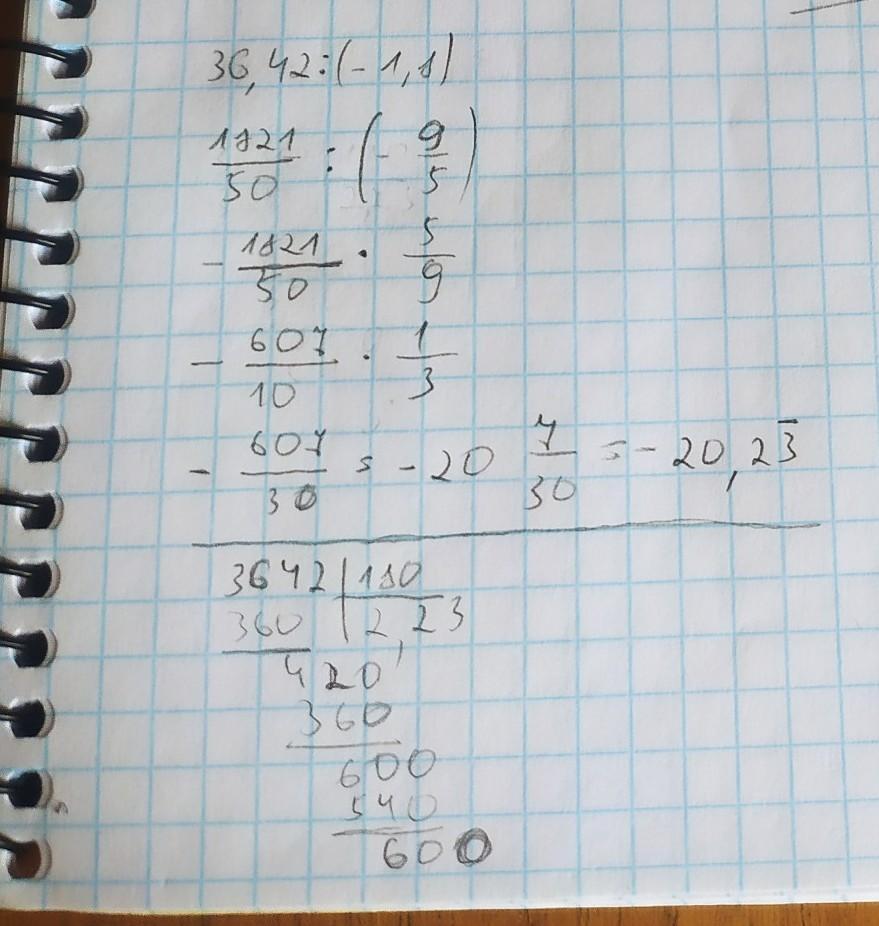 36,42:(-1,8)
1821/50 : (-9/5)
-1821/50 · 5/9
-607/10 · 1/3
-607/30 = -20 7/30 = -20,23̅
3642 | 180
360 | 2,23
420
360
600
540
600